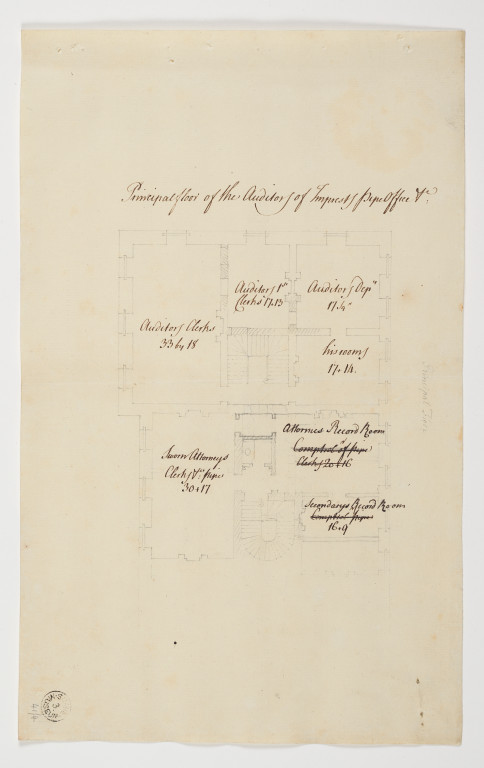 Principal floor of the Auditors of Imprests Pipe Office &c.
Auditors 1st
Clerks 17.13
Auditors Depy
17.14
Auditors Clerks
33 by 18
his rooms
17 + 14.
Attornies Record Room
Comptrol of Pipe
Clerks 20+16
Sworn Attorneys
Clerks &c. Pipe
30+17
Secondarys Record Room
Comptrol Pipe
16+9
Principal Floor